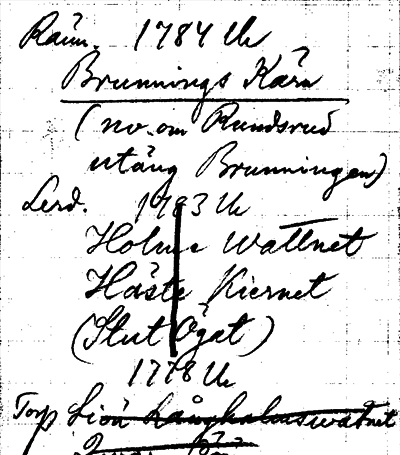 Räm. 1784 Uh
Brunnings Kärn
(no. om Rundsrud
utäng Brunningen)
Lerd. 1783 Uh
Holme Wattnet
Häste Kiernet
(Slut Ögat)
1778 Uh
Torp Siön Långholmswatnet